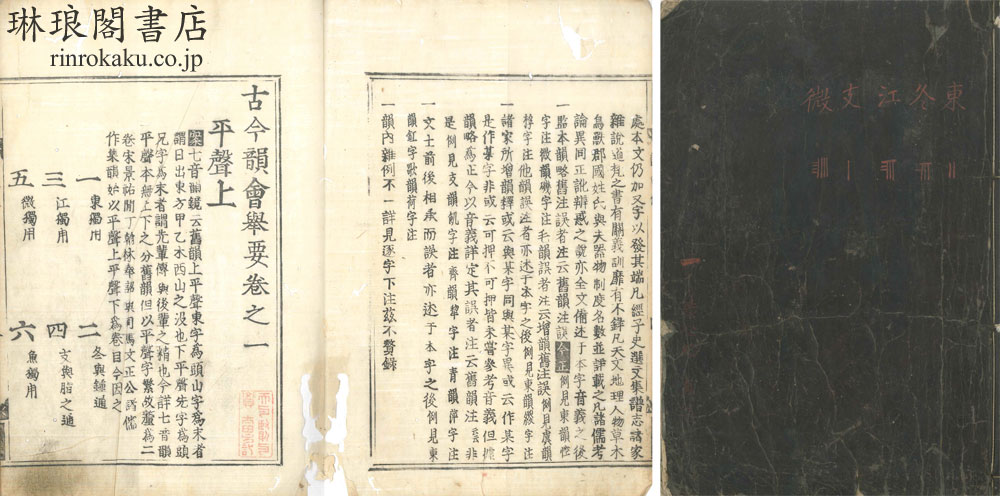 琳琅閣書店
rinrokaku.co.jp
東冬江支微
處本文仍加又字以發其端凡經子史選文集譜志諸家
雜說道梵之書有關義訓靡有不錄凡天文地理人物草木
鳥獸郡國姓氏與夫器物制度名數並詳載之凡諸儒考
論異同正訛辯惑之說亦全文備述于本字音義之後
一監本韻略舊注誤者注云舊韻注誤今正例見東韻忡
字注微韻磯字注毛韻誤者注云增韻舊注誤例見虞韻
稃字注他韻誤注者亦述于本字之後例見東韻緵字注
一諸家所增韻釋或云與某字同與某字異或云作某字
是作某字非或云可押不可押皆未嘗參考音義但據
韻略爲正今以音義詳定其誤者注云舊韻注云云非
是例見支韻飢字注齊韻犂字注青韻萍字注
一文士前後相承而誤者亦述于本字之後例見東
韻釭字歌韻荷字注
一韻內雜例不一詳見逐字下注茲不贅錄
古今韻會舉要卷之一
平聲上
案七音韻鏡云舊韻上平聲東字爲頭山字爲末者
謂日出東方甲乙木西山之没也下平聲先字爲頭
凡字爲末者謂先輩傳與後輩之精也今詳七音韻
平聲本無上下之分舊韻但以平聲字繁故釐爲二
卷宋景祐間丁翰林奉詔與司馬文正公諸儒
作集韻始以平聲上平聲下爲卷目今因之
一東獨用 二冬與鍾通
三江獨用 四支與脂之通
五微獨用 六魚獨用